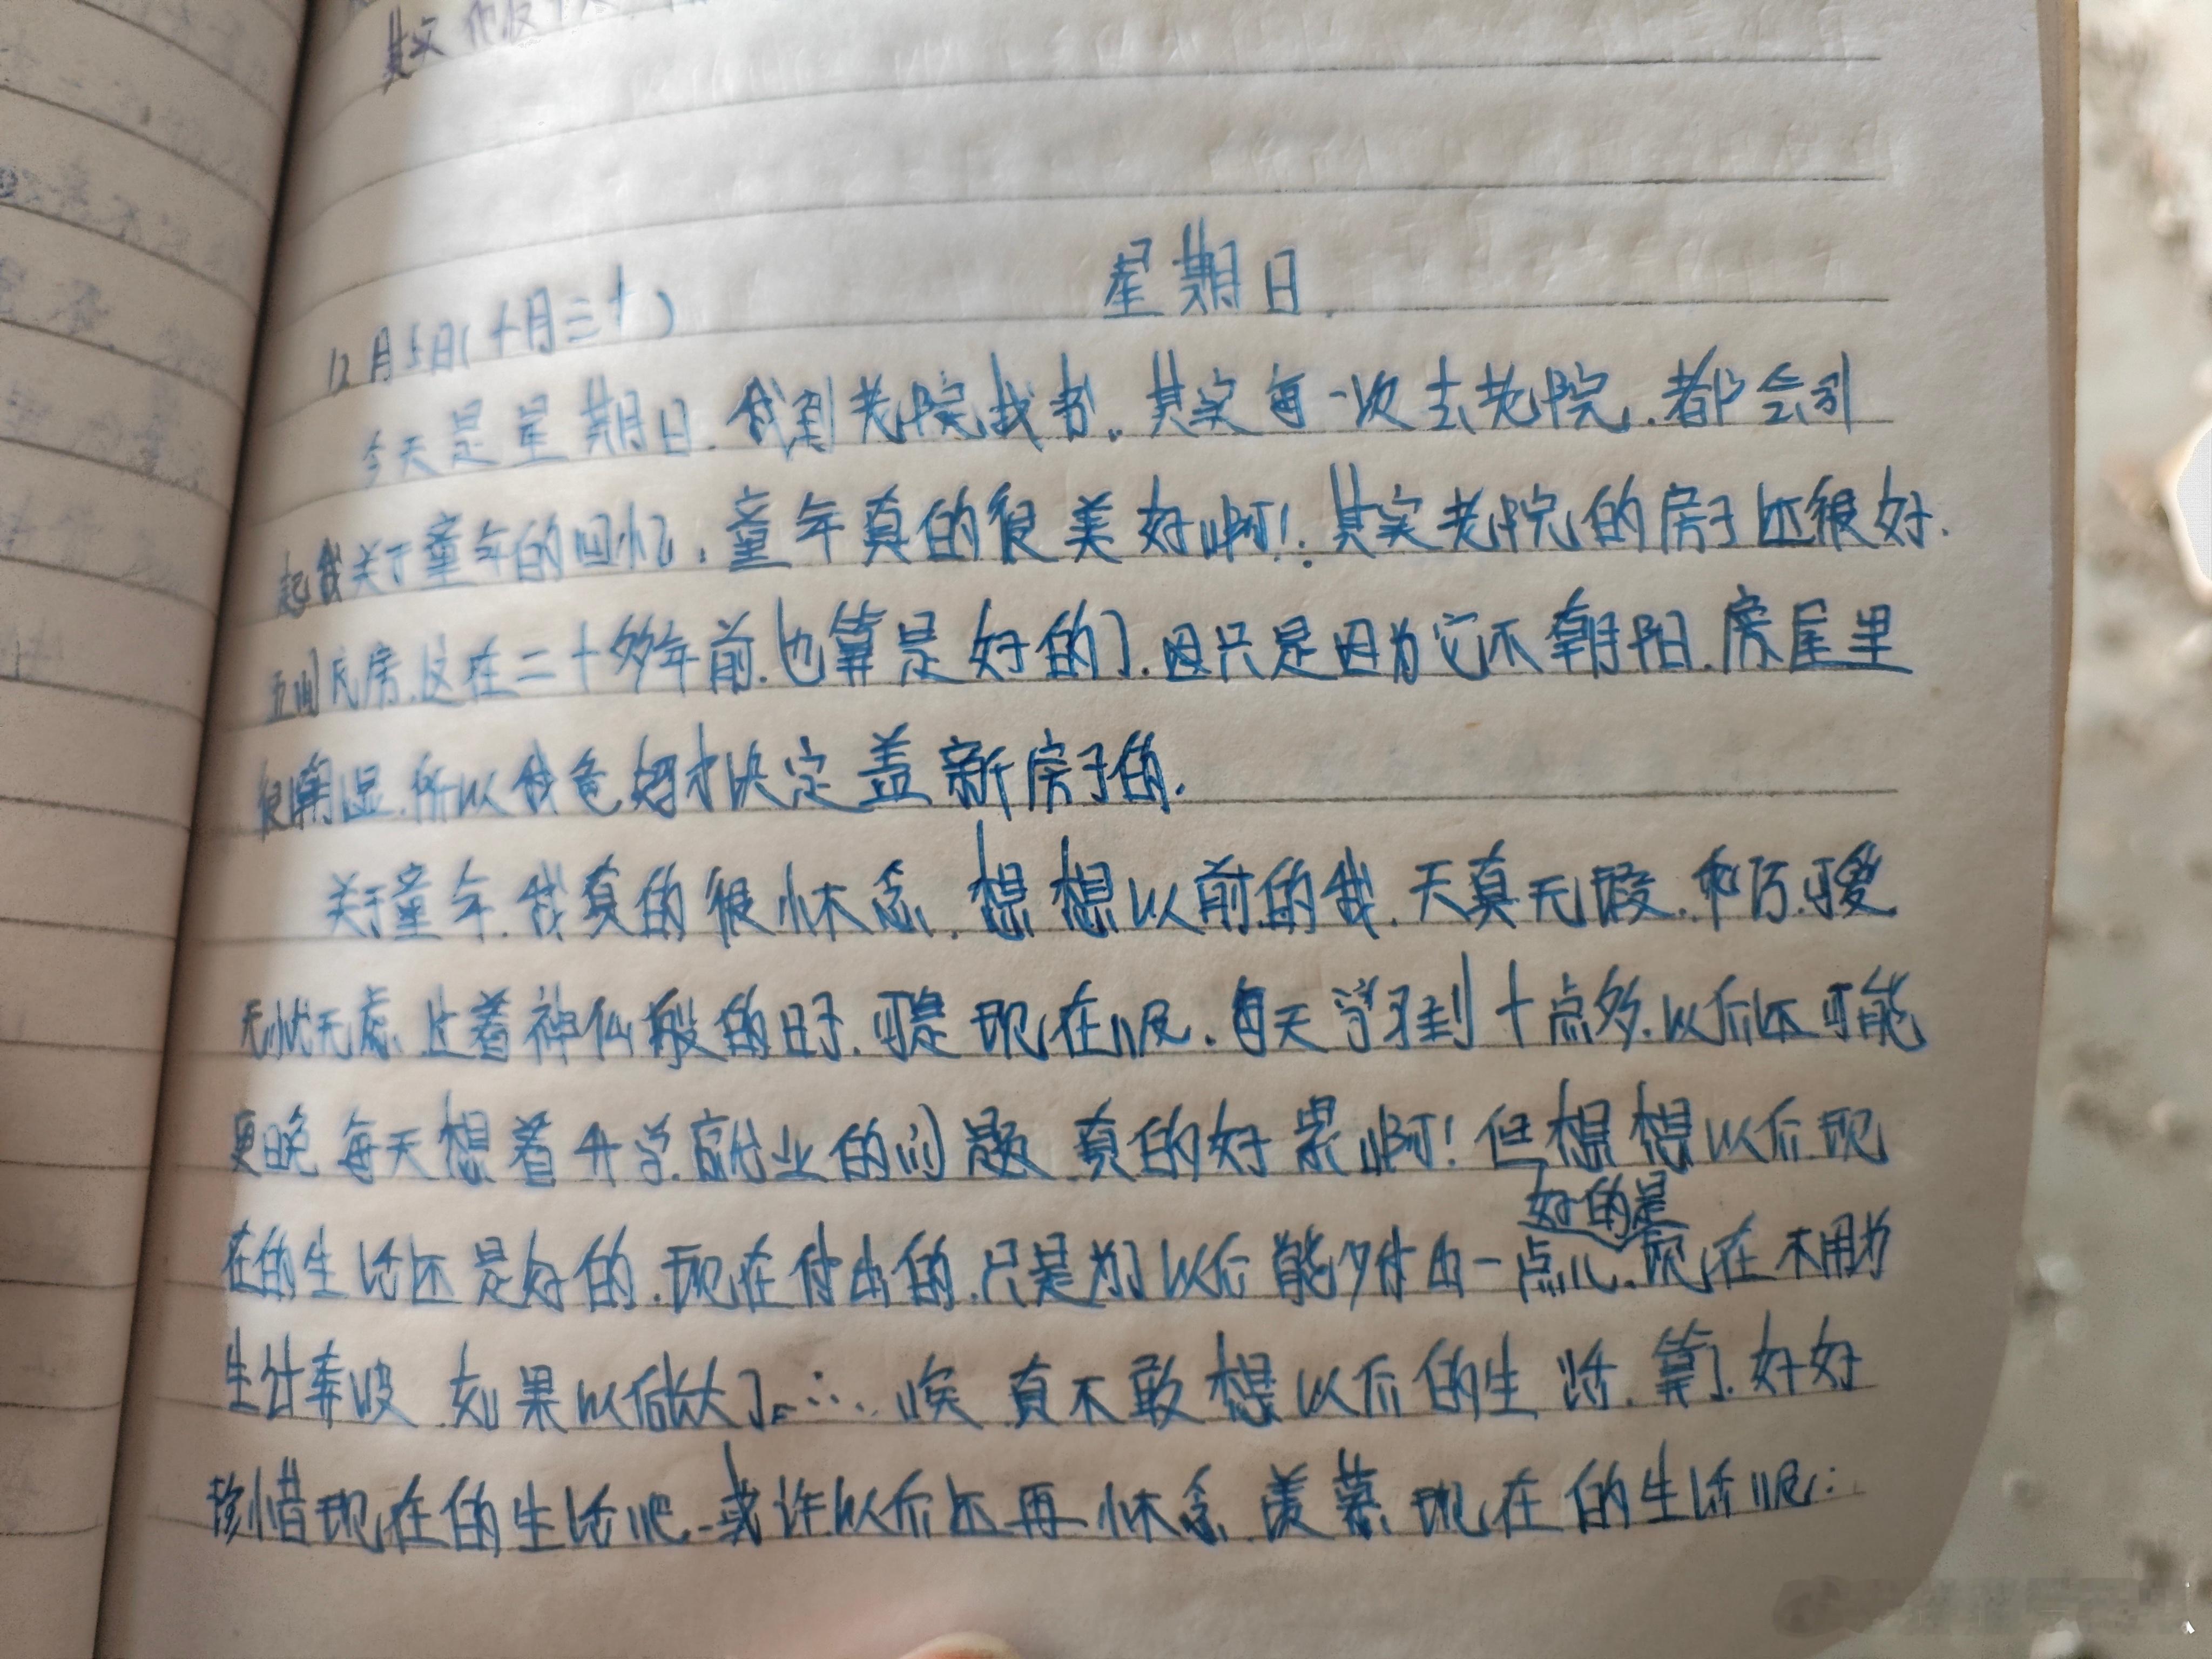 星期日.
12月5日(十月三十)
今天是星期日.我到老院找书.其实每一次去老院.都会引
起我关于童年的回忆.童年真的很美好啊!.其实老院的房子还很好.
五间瓦房.这在二十多年前.也算是好的了.只是因为它不朝阳.房屋里
很潮湿.所以我爸妈才决定盖新房子的.
关于童年.我真的很怀念.想想以前的我.天真无瑕.可爱
无忧无虑.过着神仙般的日子.可是现在呢.每天学习到十点多.以后还可能
更晚 每天想着升学.就业的问题.真的好累啊!但想想以后现
在的生活还是好的.现在付出的.只是为了以后能够付出一点儿.好的是现在不用为
生计奔波 如果以后长大了。..... 唉 真不敢想以后的生活.算了.好好
珍惜现在的生活吧.或许以后还再怀念 羡慕现在的生活呢...